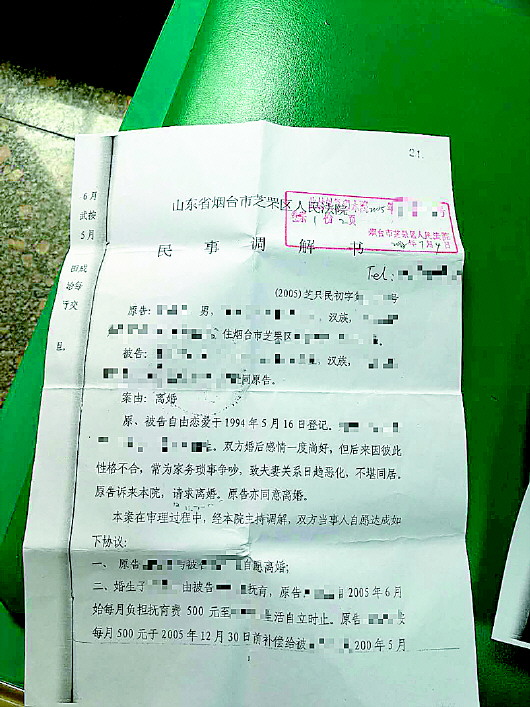 21.
6月
武按
5月
因成
给每
行交
山东省烟台市芝罘区人民法院
2005年 号
1份2页
烟台市芝罘区人民法院
民事调解书
Tel:
(2005)芝只民初字 号
原告: 男, 汉族,
住烟台市芝罘区
被告: 汉族,
同原告。
案由:离婚
原、被告自由恋爱于1994年5月16日登记。
双方婚后感情一度尚好,但后来因彼此
性格不合,常为家务琐事争吵,致夫妻关系日趋恶化,不堪同居。
原告诉来本院,请求离婚。原告亦同意离婚。
本案在审理过程中,经本院主持调解,双方当事人自愿达成如
下协议:
一、原告 与被 自愿离婚;
二、婚生子 由被告 抚育,原告 自2005年6月
始每月负担抚育费500元至 生活自立时止。原告
每月500元于2005年12月30日前补偿给被 200年5月
1